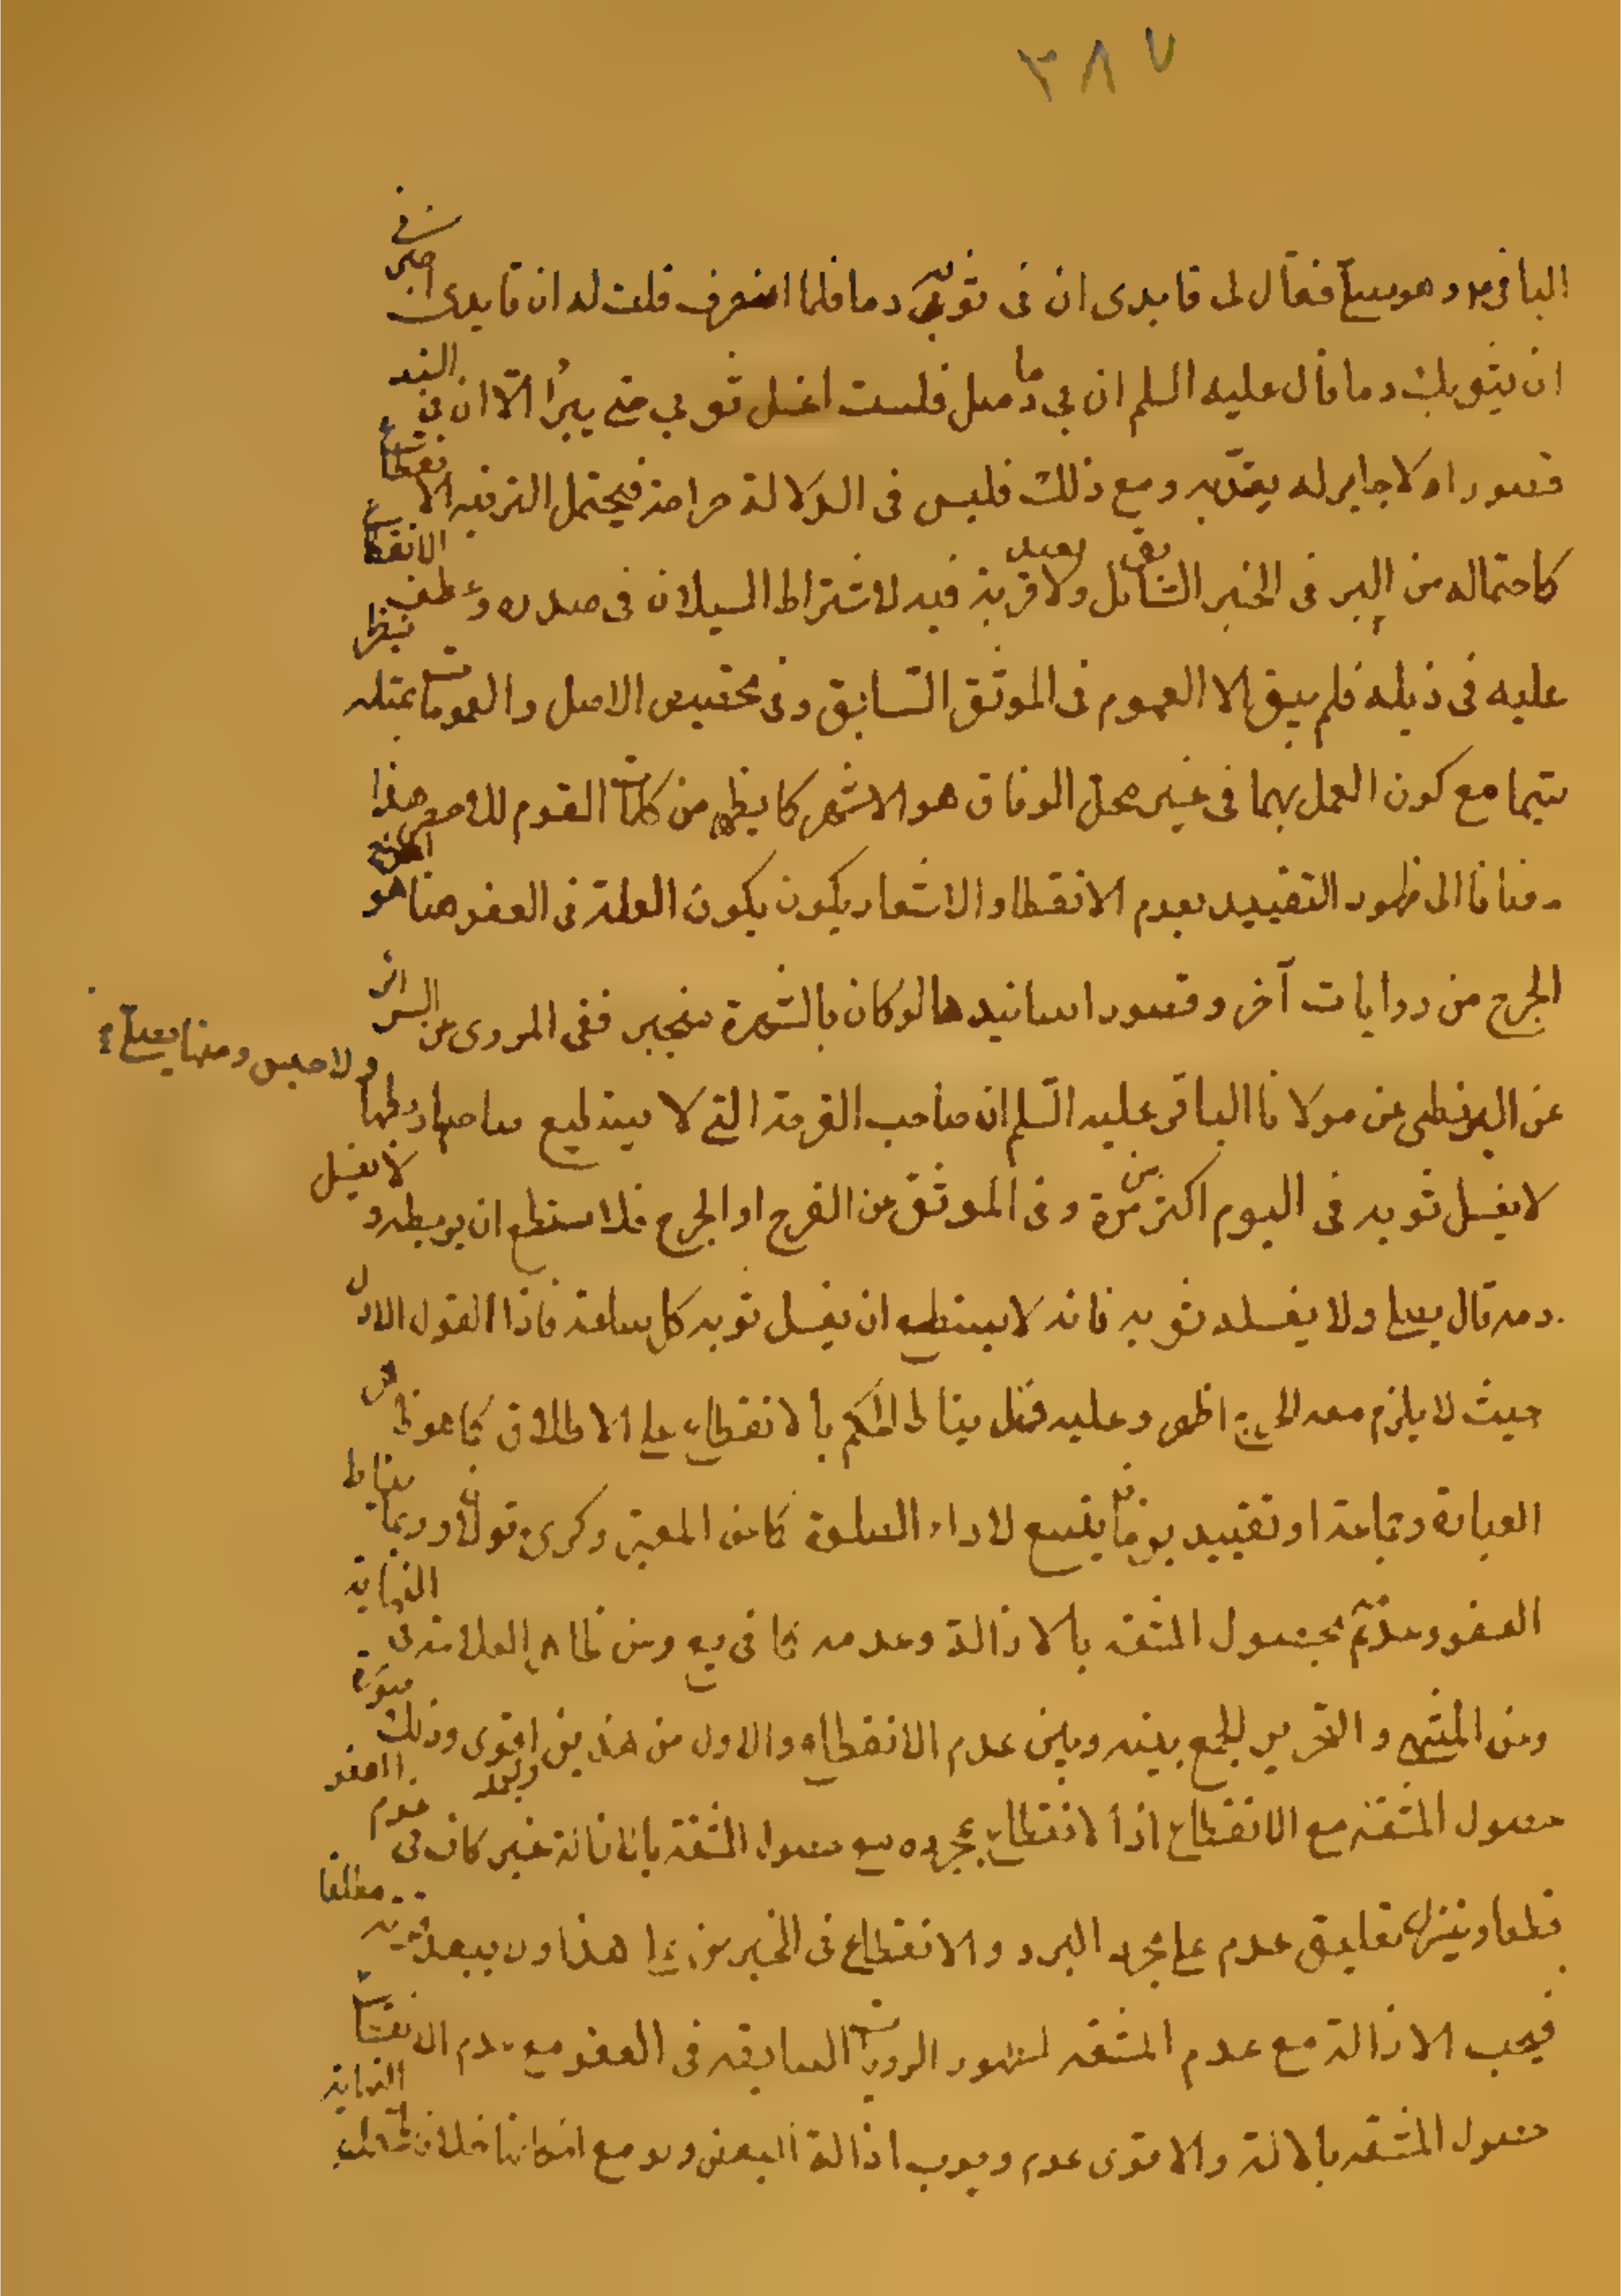 ٣٨٧
الباقر ع وهو يصلي فقال لى قايدى ان فى ثوبه دما فلما انصرف قلت له ان قايدى اخبرنى
ان بثوبك دما فقال عليه السلم ان بى دماميل فلست اغسل ثوبي حتى يبرأ الا ان فى السند
قصورا ولا جابر له يعتد به ومع ذلك فليس فى الدلالة صراحة فيحتمل الترقيه الانقطاع
كاحتماله من البرء فى الخبر السابق بل ولا بعيد قرينة فيه لاشتراط السيلان فى صدره وعطف الانقطاع
عليه فى ذيله فلم يبق الا العموم فى الموثق السابق وفى تخصيص الاصل والعمومات بمثله نظر
سيما مع كون العمل بهما فى غير محل الوفاق هو الاشهر كما يظهر من كلمات القوم هذا
مضافا الى ظهور التقييد بعدم الانقطاع والاشعار بكون العلة فى العفو هنا هو
الحرج من روايات آخر وقصور اسانيدها لو كان بالشهرة منجبر ففى المروى عن السرائر
عن البزنطى عن مولانا الباقر عليه السلم ان صاحب القرحة التى لا يستطيع صاحبها ربطها ولا حبس دمها يصلى و
لا يغسل ثوبه فى اليوم اكثر من مرة وفى الموثق عن القرح او الجرح فلا يستطيع ان يربطه ولا يغسل
دمه قال يصلى ولا يغسله ثوبه فانه لا يستطيع ان يغسل ثوبه كل ساعة فاذا القول الاول
حيث لا يلزم معه الحرج اظهر وعليه فهل يناط الحكم بالانقطاع على الاطلاق كما هو ظاهر
العبارة وجماعة او تقييد بزمان يتسع لاداء الصلوة كما عن المعتبر وكرى قولان وربما يناط
العفو وعدمه بحصول المشقه بالازالة وعدمه كما فى يع وعن ظاهر العلامة فى النهاية
وعن المنتهى والتحرير للجمع بينه وبين عدم الانقطاع والاول من هذين اقوى وذلك صورة
حصول المشقة مع الانقطاع اذ الانقطاع بمجرده مع حصول المشقة بالازالة غير كاف فى عدم العفو
قطعا وينزل تعليق عدم على مجرد البرء والانقطاع فى الخبرين هذا ولا يبعد مطلقا
فيجب الازالة مع عدم المشقه لظهور الروايات السابقه فى العفو مع عدم الانقطاع
حصول المشقه بالازالة والاقوى عدم وجوب ازالة البعض ولو مع امكانها خلافا للنهاية